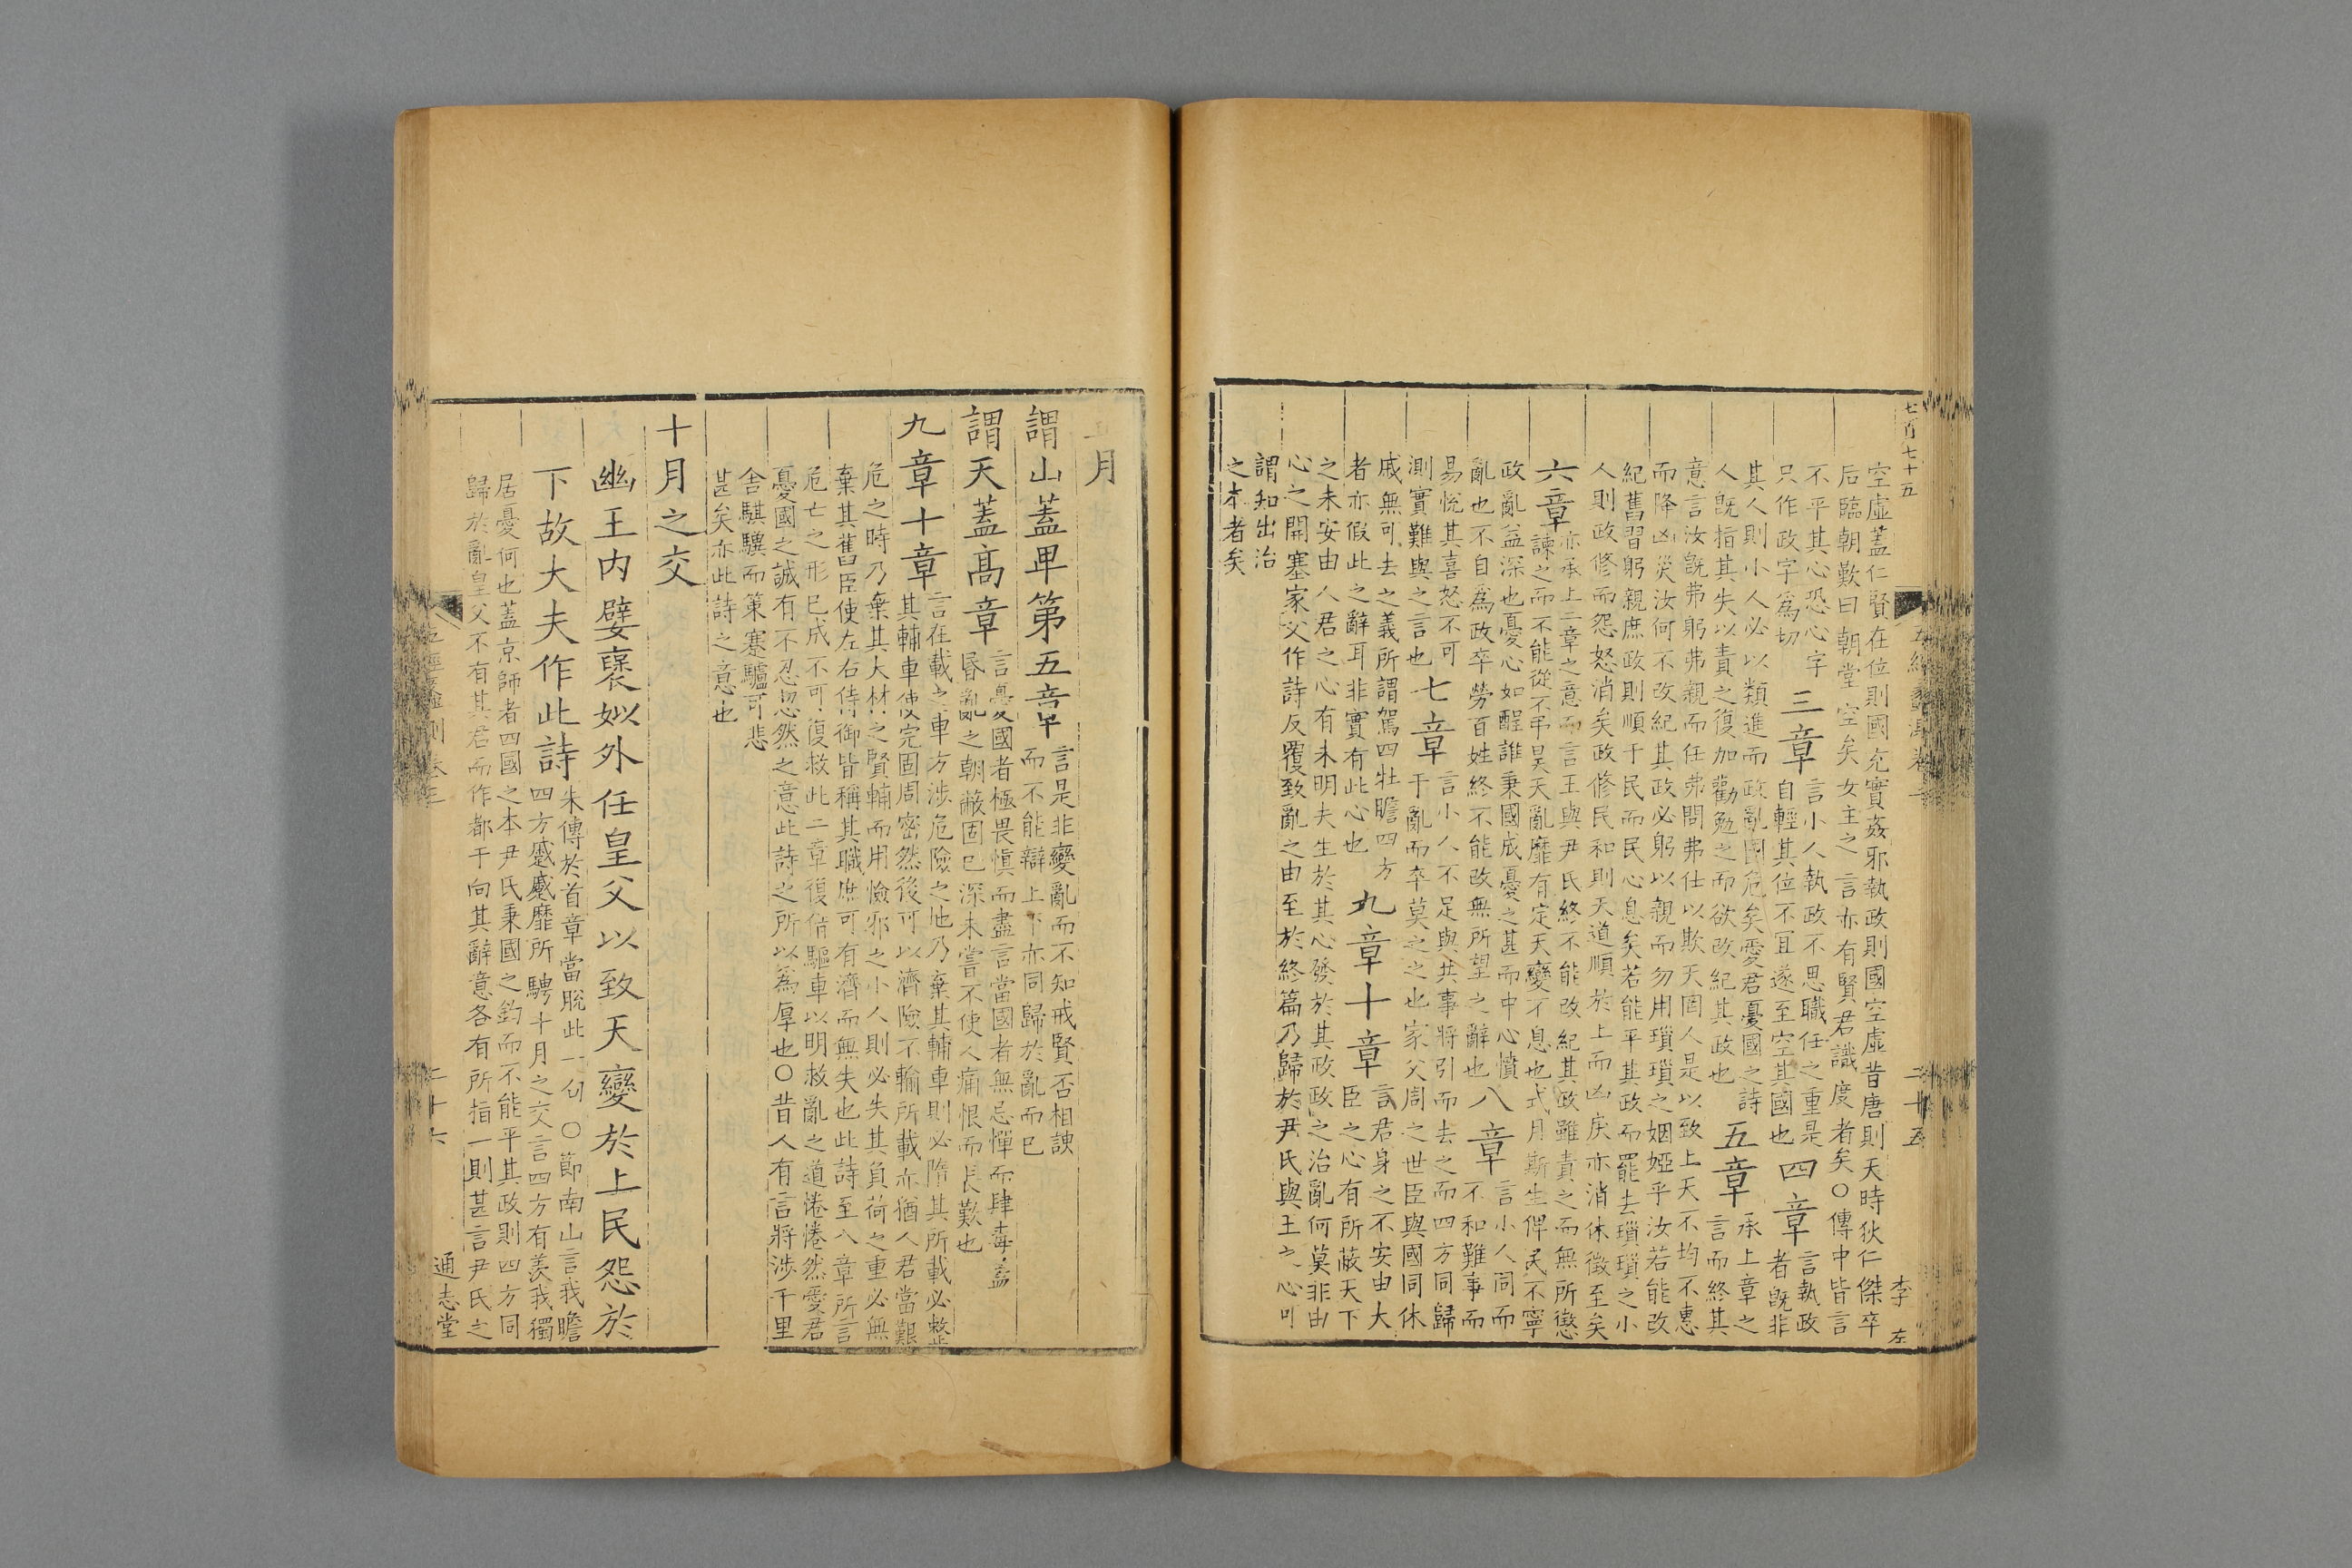 七百七十五
五經蠡測卷
二十五
李 左
空虛蓋仁賢在位則國充實姦邪執政則國空虛昔唐則天時狄仁傑卒
后臨朝歎曰朝堂空矣女主之言亦有賢君識度者矣○傳中皆言
不平其心恐心字
只作政字爲切
三章
言小人執政不思職任之重是
自輕其位不宜遂至空其國也
四章
言執政
者旣非
其人則小人必以類進而政亂國危矣愛君憂國之詩
人旣指其失以責之復加勸勉之而欲改紀其政也
五章
承上章之
言而終其
意言汝旣弗躬弗親而任弗問弗仕以欺天罔人是以致上天不均不惠
而降凶災汝何不改紀其政必躬以親而勿用瑣瑣之姻婭乎汝若能改
紀舊習躬親庶政則順于民而民心息矣若能平其政而罷去瑣瑣之小
人則政修而怨怒消矣政修民和則天道順於上而凶戾亦消休徵至矣
六章
亦承上二章之意而言王與尹氏終不能改紀其政雖責之而無所懲
諫之而不能從不弔昊天亂靡有定天變不息也式月斯生俾民不寧
政亂益深也憂心如酲誰秉國成憂之甚而中心憒
亂也不自爲政卒勞百姓終不能改無所望之辭也
八章
言小人同而
不和難事而
易悅其喜怒不可
測實難與之言也
七章
言小人不足與共事將引而去之而四方同歸
于亂而卒莫之之也家父周之世臣與國同休
戚無可去之義所謂駕四牡瞻四方
者亦假此之辭耳非實有此心也
九章十章
言君身之不安由大
臣之心有所蔽天下
之未安由人君之心有未明夫生於其心發於其政政之治亂何莫非由
心之開塞家父作詩反覆致亂之由至於終篇乃歸於尹氏與王之心可
謂知出治
之本者矣
正月
謂山蓋卑第五章
言是非變亂而不知戒賢否相諛
而不能辯上下亦同歸於亂而已
謂天蓋高章
言憂國者極畏愼而盡言當國者無忌憚而肆毒蓋
昬亂之朝蔽固已深未嘗不使人痛恨而長歎也
九章十章
言在載之車方涉危險之地乃棄其輔車則必隋其所載必整
其輔車使完固周密然後可以濟險不輸所載亦猶人君當艱
危之時乃棄其大材之賢輔而用憸邪之小人則必失其負荷之重必無
棄其舊臣使左右侍御皆稱其職庶可有濟而無失也此詩至八章所言
危亡之形已成不可復救此二章復借驅車以明救亂之道惓惓然愛君
憂國之誠有不忍忽然之意此詩之所以爲厚也○昔人有言將涉千里
舍騏驥而策蹇驢可悲
甚矣亦此詩之意也
十月之交
幽王内嬖襃姒外任皇父以致天變於上民怨於
下故大夫作此詩
朱傳於首章當脫此一句○節南山言我瞻
四方蹙蹙靡所騁十月之交言四方有羨我獨
居憂何也蓋京師者四國之本尹氏秉國之鈞而不能平其政則四方同
歸於亂皇父不有其君而作都于向其辭意各有所指一則甚言尹氏之
五經蠡測卷三
二十六
通志堂